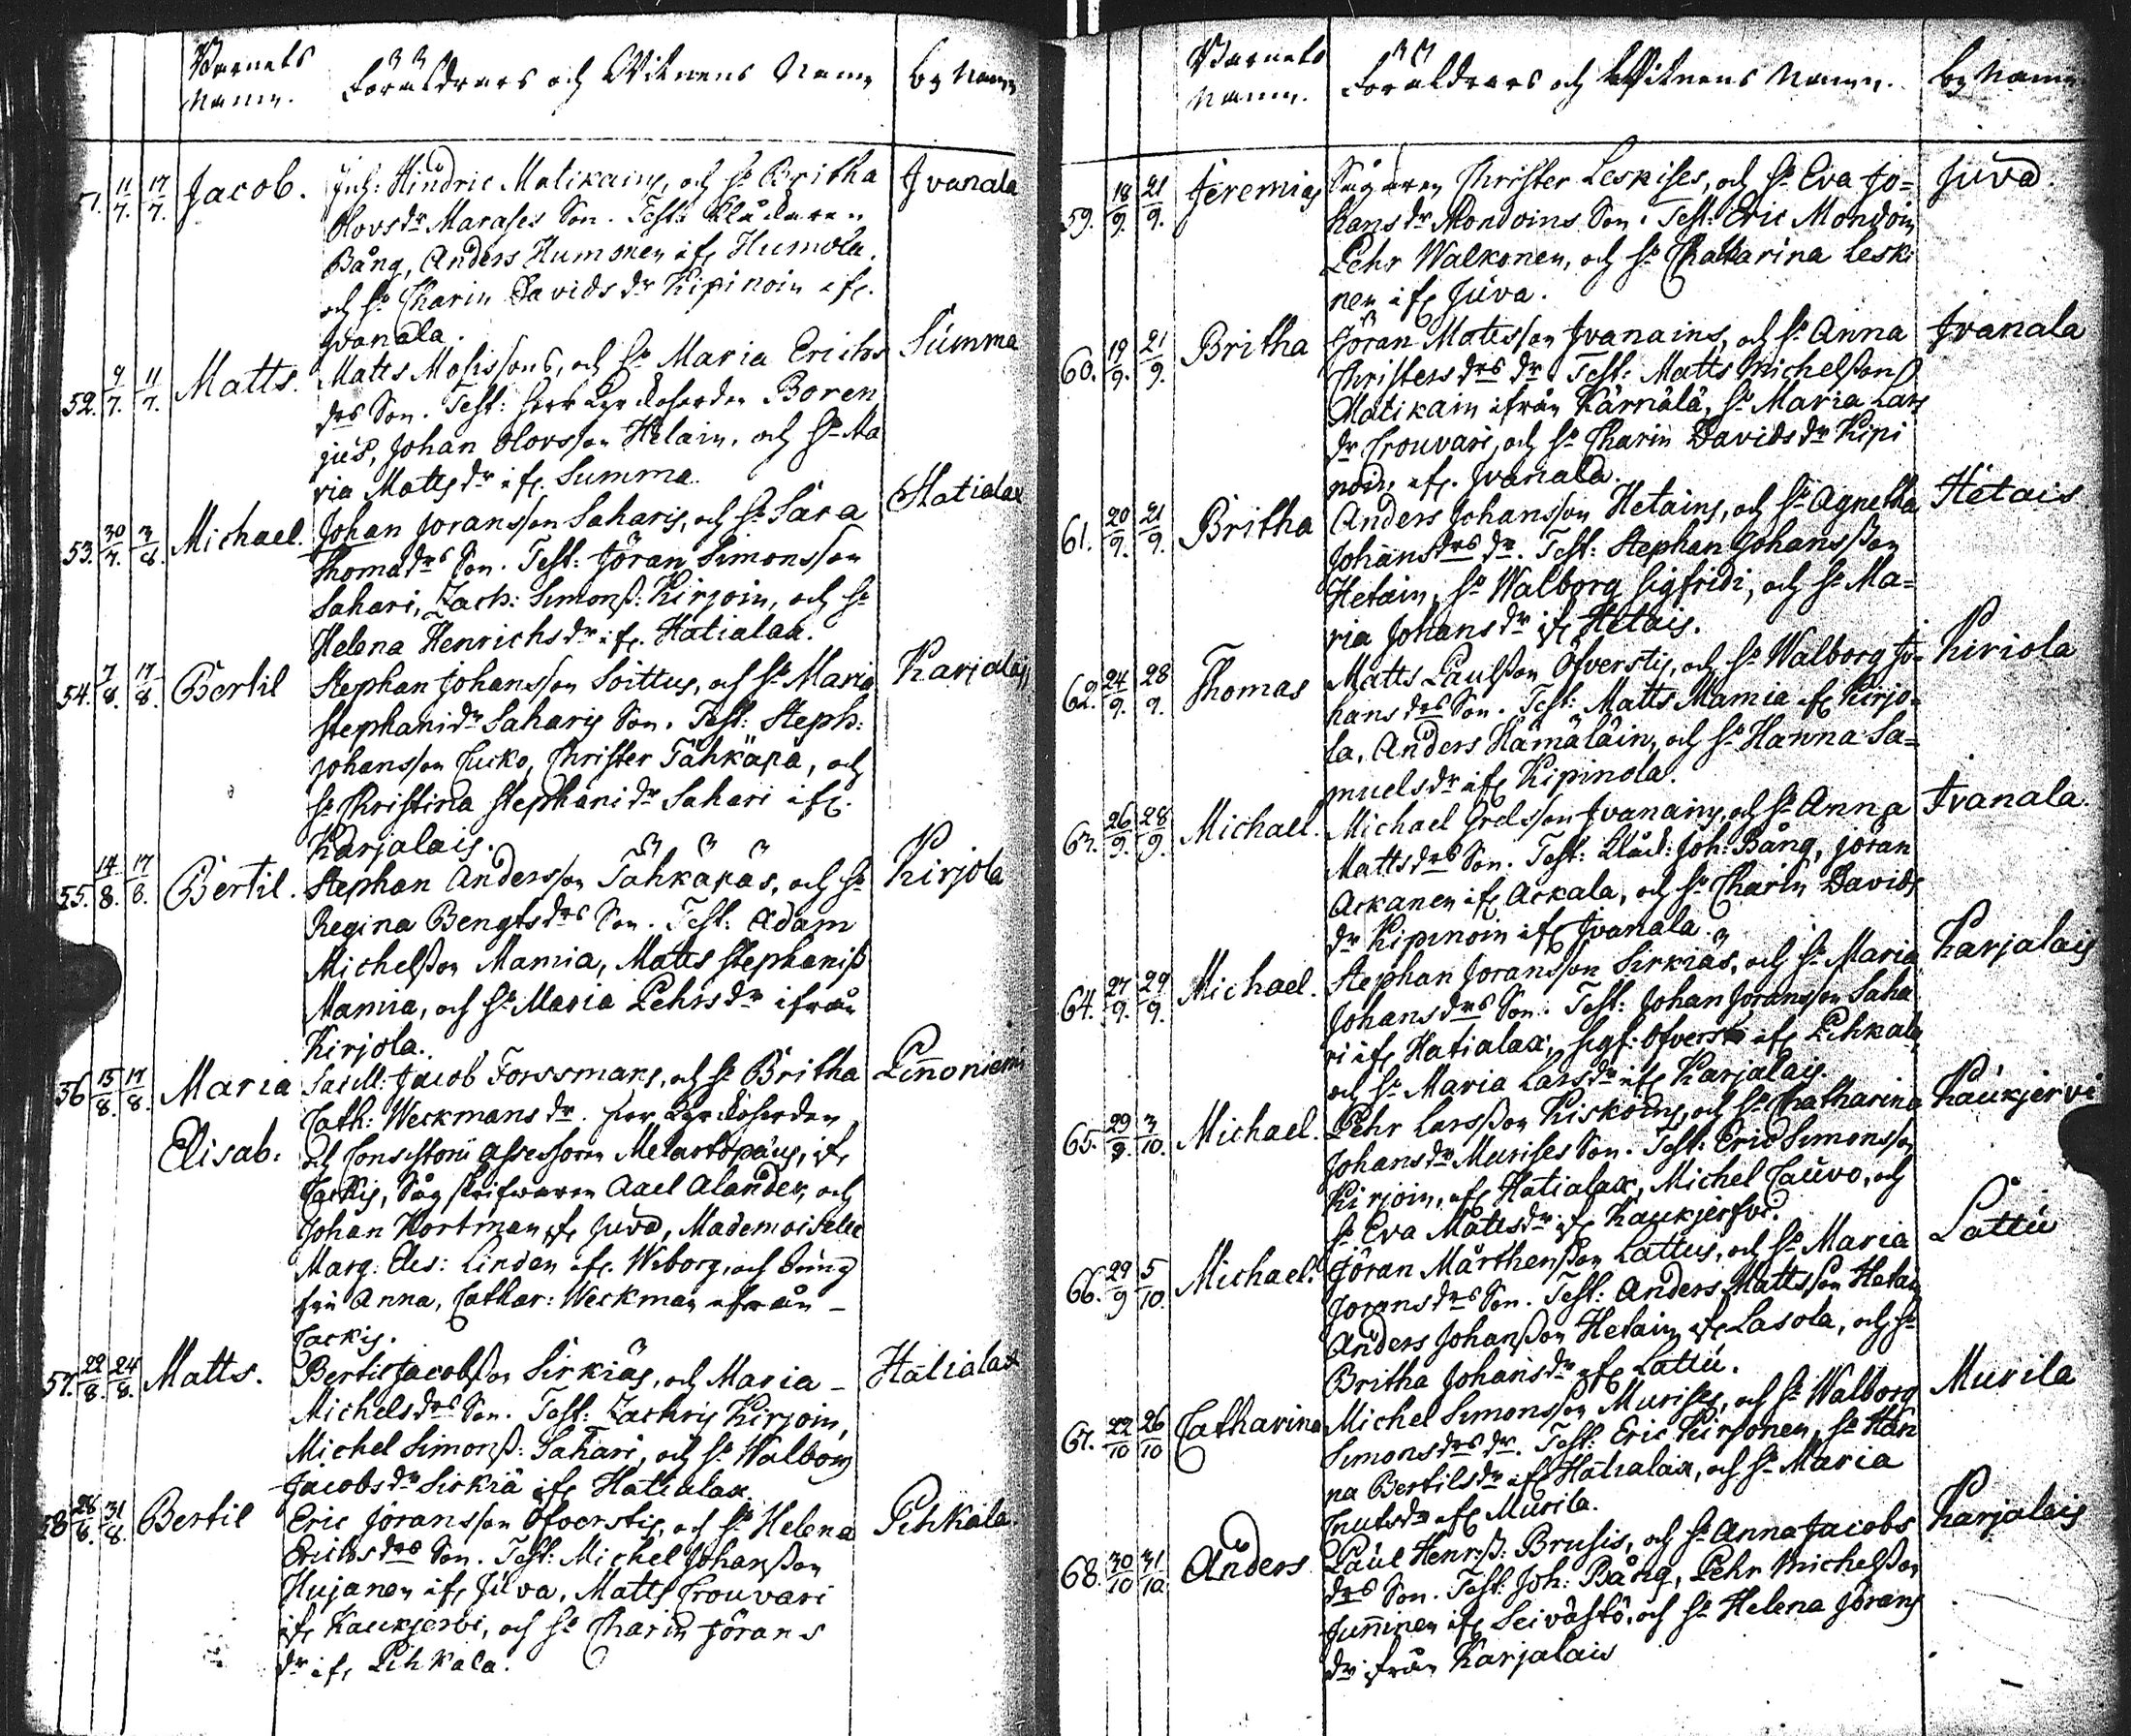 Barnets Namn. Föräldrars och Witnens Namn by Namn
51. 11/7. 17/7. Jacob. Inh: Hindric Matikains, och h: Britha Ivanala
Olovsdr Marases Son. Test: Klåckaren
Bång, Anders Hummonen ifr. Humola,
och h: Charin Davidsdr Kipinoin ifr.
Ivanala.
52. 9/7. 11/7. Matts. Matts Mosissons, och h: Maria Erichs Summa
drs Son. Test: herr Kyrckoherden Boren
jus, Johan Olovsson Helain, och h: Ma
ria Mattsdr ifr. Summa.
53. 30/7. 3/8. Michael. Johan Joransson Saharis, och h: Sara Hatialax
Thomadrs Son. Test: Jöran Simonsson
Sahari, Zach: Simonss: Kirjoin, och h:
Helena Henrichsdr ifr. Hatialax.
54. 7/8. 17/8. Bertil Stephan Johansson Soittus, och h: Maria Karjalais
Stephanidr Saharis Son. Test: Steph:
Johansson Cucko, Christer Tähkäpä, och
h: Christina Stephanidr Sahari ifr.
Karjalais.
55. 14/8. 17/8. Bertil. Stephan Andersson Tähkäpäs, och h: Kirjola
Regina Bengtsdrs Son. Test: Adam
Michelsson Mamia, Matts Stephaniss
Mamia, och h: Maria Pehrsdr ifrån
Kirjola.
56 15/8. 17/8. Maria Jacob Forssmans, och h: Britha Pinnoniemi
Cath: Weckmans dr. herr Kyrckoherden
Elisab: och Consistorii Assessoren Melartopæus, ifr
Cackis, Såg skrifwaren Axel Alander, och
Johan Hortman ifr Juva, Mademoiselle
Marg: Elis: Linden ifr. Wiborg, och Jung
fru Anna, Cathar: Weckman ifrån
Cackis.
57. 22/8. 24/8. Matts. Bertil Jacobsson Sirkiäs, och Maria Hatialax
Michelsdrs Son. Test: Zachris Kirjoin,
Michel Simonss: Sahari, och h: Walborg
Jacobsdr Sirkiä ifr Hatialax.
58 28/8. 31/8. Bertil Eric Joransson Ofverstis, och h: Helena Pihkala.
Erichsdrs Son. Test: Michel Johansson
Hujanen ifr Juva, Matts Crouvari
ifr Kaukjervi, och h: Charin Jörans
dr ifr Pihkala.
Barnets Namn. Föräldrars och Witnens Namn. by Namn
59. 18/9. 21/9. Jeremias Sågaren Christer Leskises, och h: Eva Jo= Juva
hansdr Mondoins Son. Test: Eric Mondoin
Pehr Walkonen, och h: Chatharina Leski
nen ifr Juva.
60. 19/9. 21/9. Britha Jöran Matesson Ivanains, och h: Anna Ivanala
Christersdrs dr. Test: Matts Michelsson
Matikain ifrån Kärnälä, h: Maria Lars
dr Crouvari, och h: Charin Davidsdr Kipi
noin, ifr. Ivanala.
61. 20/9. 21/9. Britha Anders Johansson Hetains, och h: Agnetha Hetais
Johansdrs dr. Test: Stephan Johansson
Hetain, h: Walborg Sigfridi, och h: Ma=
ria Johansdr ifr Hetais.
62. 24/9. 28/9. Thomas Matts Paulsson Ofverstis, och h: Walborg Jo= Kiriola
hansdrs Son. Test: Matts Mamia ifr Kirjo=
la, Anders Hämäläin, och h: Hanna Sa=
muelsdr ifr Kipinola.
63. 26/9. 28/9. Michael. Michael Grelsson Ivanains, och h: Anna Ivanala.
Mattsdrs Son. Test: Klåck: Joh: Bång, Jöran
Ackanen ifr Ackala, och h: Charin Davids
dr Kipinoin ifr Ivanala.
64. 27/9. 29/9. Michael. Stephan Joransson Sirkiäs, och h: Maria Karjalais
Johansdrs Son. Test: Johan Joransson Saha
ri ifr Hatialax, Sigf: Ofversti ifr Pihkala,
och h: Maria Larsdr ifr Karjalais.
65. 29/9. 3/10. Michael. Pehr Larsson Kiskoins, och h: Chatharina Kaukjervi
Johansdr Murises Son. Test: Eric Simonsson
Kirjoin, ifr Hatialax, Michel Cauvo, och
h: Eva Mattsdr ifr Kaukjerfvi.
66. 29/9 5/10. Michael. Jöran Mårthensson Lattus, och h: Maria Lattu
Joransdrs Son. Test: Anders Mattsson Hetain
Anders Johansson Hetain ifr Lasola, och h:
Britha Johansdr ifr Lattu.
67. 22/10 26/10 Catharina Michel Simonsson Murises, och h: Walborg Murila
Simonsdrs dr. Test: Eric Kirjonen, h: Han
na Bertilsdr ifr Hatialax, och h: Maria
Cnutsdr ifr Murila.
68. 30/10 31/10 Anders Paul Henrss: Brusis, och h: Anna Jacobs Karjalais
drs Son. Test: Joh: Bång, Pehr Michelsson
Junninen ifr Seivästö, och h: Helena Jörans
dr ifrån Karjalais